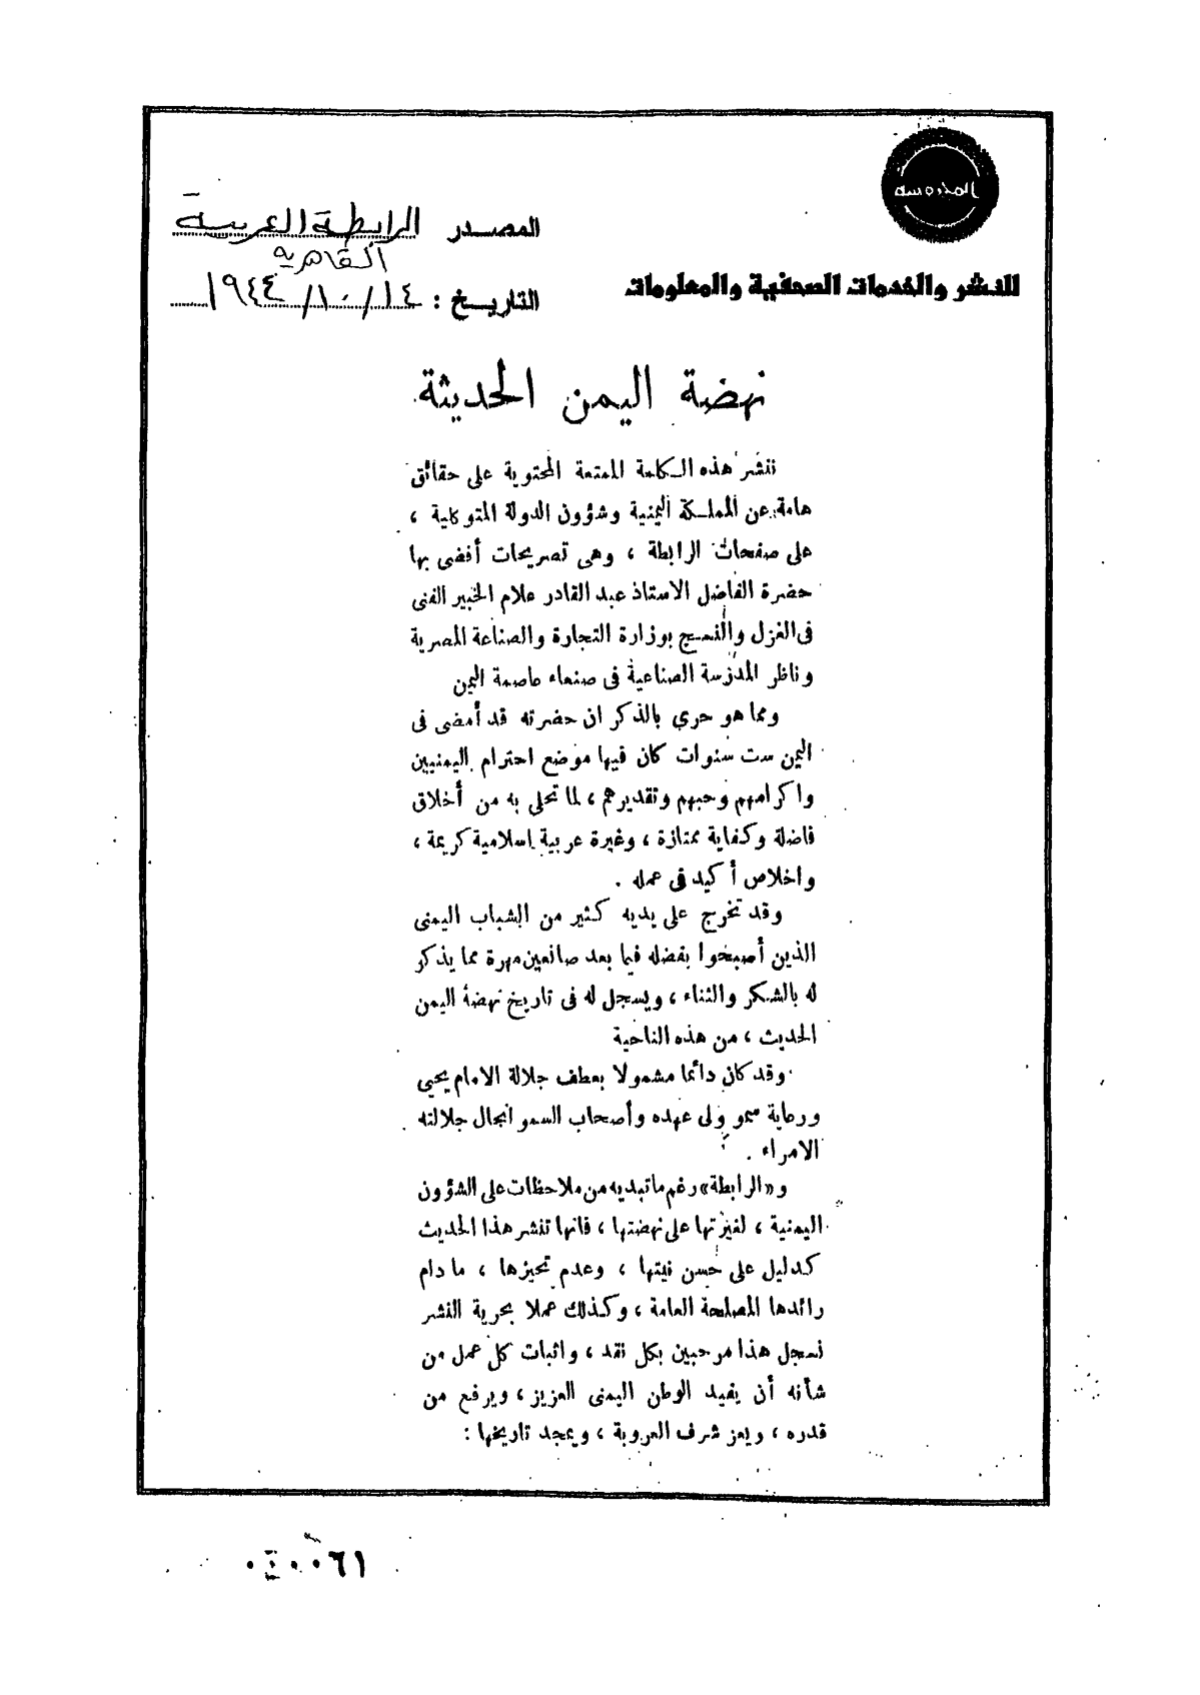 المحروسة
للنشر والخدمات الصحفية والمعلومات
المصدر الرابطة العربية
القاهرية
التاريخ : ١٤/١٠/١٩٤٤
نهضة اليمن الحديثة
ننشر هذه الكلمة الممتعة المحتوية على حقائق
هامة عن المملكة اليمنية وشؤون الدولة المتوكلية ،
على صفحات الرابطة ، وهى تصريحات أفضى بها
حضرة الفاضل الاستاذ عبد القادر علام الخبير الفنى
فى الغزل والنسيج بوزارة التجارة والصناعة المصرية
وناظر المدرسة الصناعية فى صنعاء عاصمة اليمن
ومما هو حرى بالذكر ان حضرته قد أمضى فى
اليمن ست سنوات كان فيها موضع احترام اليمنيين
واكرامهم وحبهم وتقديرهم ، لما تحلى به من أخلاق
فاضلة وكفاية ممتازة ، وغيرة عربية إسلامية كريمة ،
واخلاص أكيد فى عمله .
وقد تخرج على يديه كثير من الشباب اليمنى
الذين أصبحوا بفضله فيما بعد صانعين مهرة مما يذكر
له بالشكر والثناء ، ويسجل له فى تاريخ نهضة اليمن
الحديث ، من هذه الناحية
وقد كان دائما مشمولا بعطف جلالة الامام يحيى
ورعاية سمو ولى عهده وأصحاب السمو انجال جلالته
الامراء .
و«الرابطة» رغم ماتبديه من ملاحظات على الشؤون
اليمنية ، لغيرتها على نهضتها ، فانها تنشر هذا الحديث
كدليل على حسن نيتها ، وعدم تحيزها ، مادام
رائدها المصلحة العامة ، وكذلك عملا بحرية النشر
نسجل هذا مرحبين بكل نقد ، واثبات كل عمل من
شأنه أن يفيد الوطن اليمنى العزيز ، ويرفع من
قدره ، ويعز شرف العروبة ، ويمجد تاريخها :